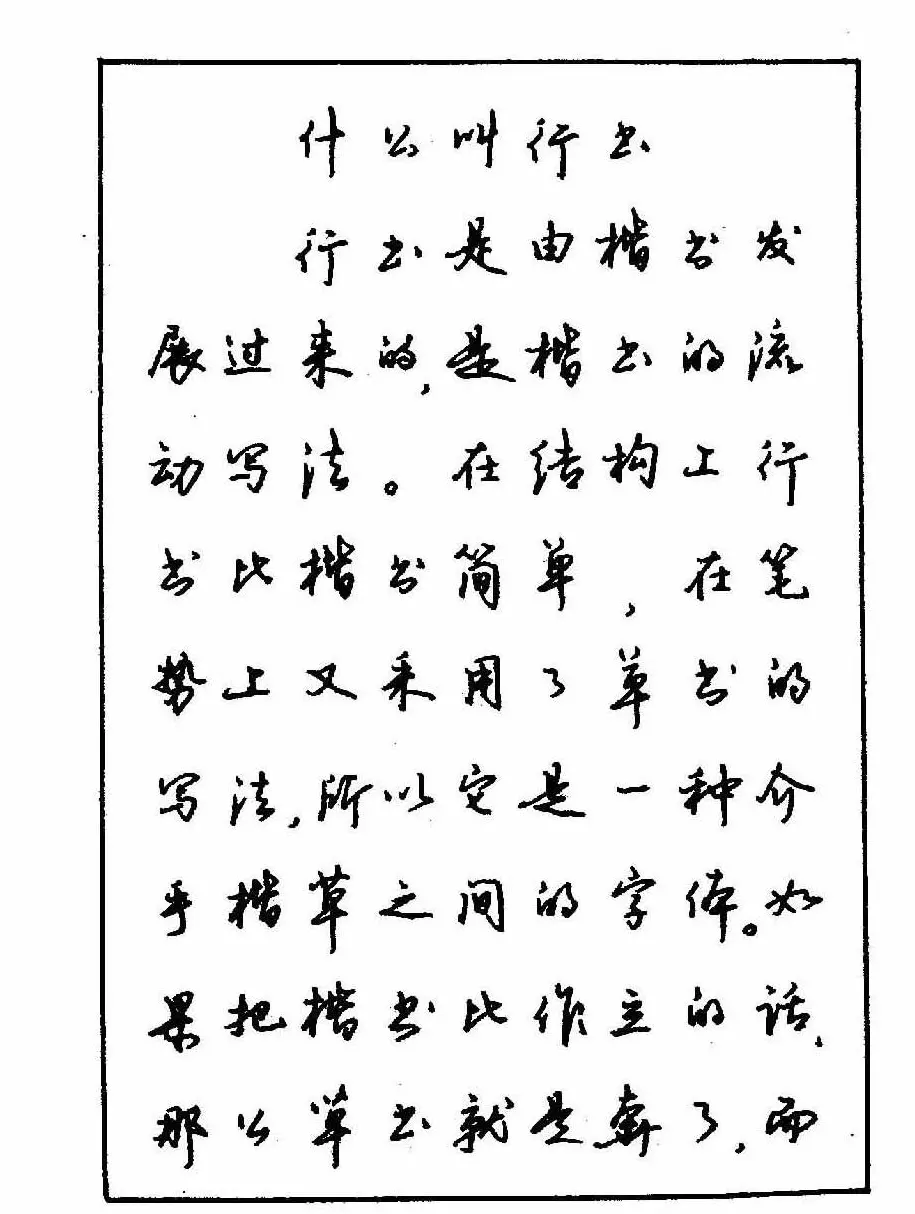 什么叫行书
行书是由楷书发
展过来的,是楷书的流
动写法。在结构上行
书比楷书简单,在笔
势上又采用了草书的
写法,所以它是一种介
乎楷草之间的字体。如
果把楷书比作立的话,
那么草书就是奔了,而